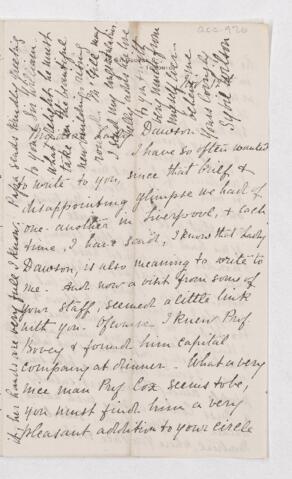 acc. 976
Dawson
I have so often wanted
to write to you, since that brief, &
disappointing glimpse we had of
one another in Liverpool, & each
time, I have said, I know that Lady
Dawson, is also meaning to write to
me. And now a visit from some of
your staff, seemed a little link
with you. Of course, I knew Prof
Bovey & found him capital
company at dinner. What a very
nice man Prof Cox seems to be,
you must find him a very
pleasant addition to your circle
her hands are very full I know. Papa sends kindly greeting
to you & Sir William.
What delight he must
take in the beautiful
new buildings rising
round McGill may
I send my
love
to you
very much from
myself ever
believe me
Yours lovingly